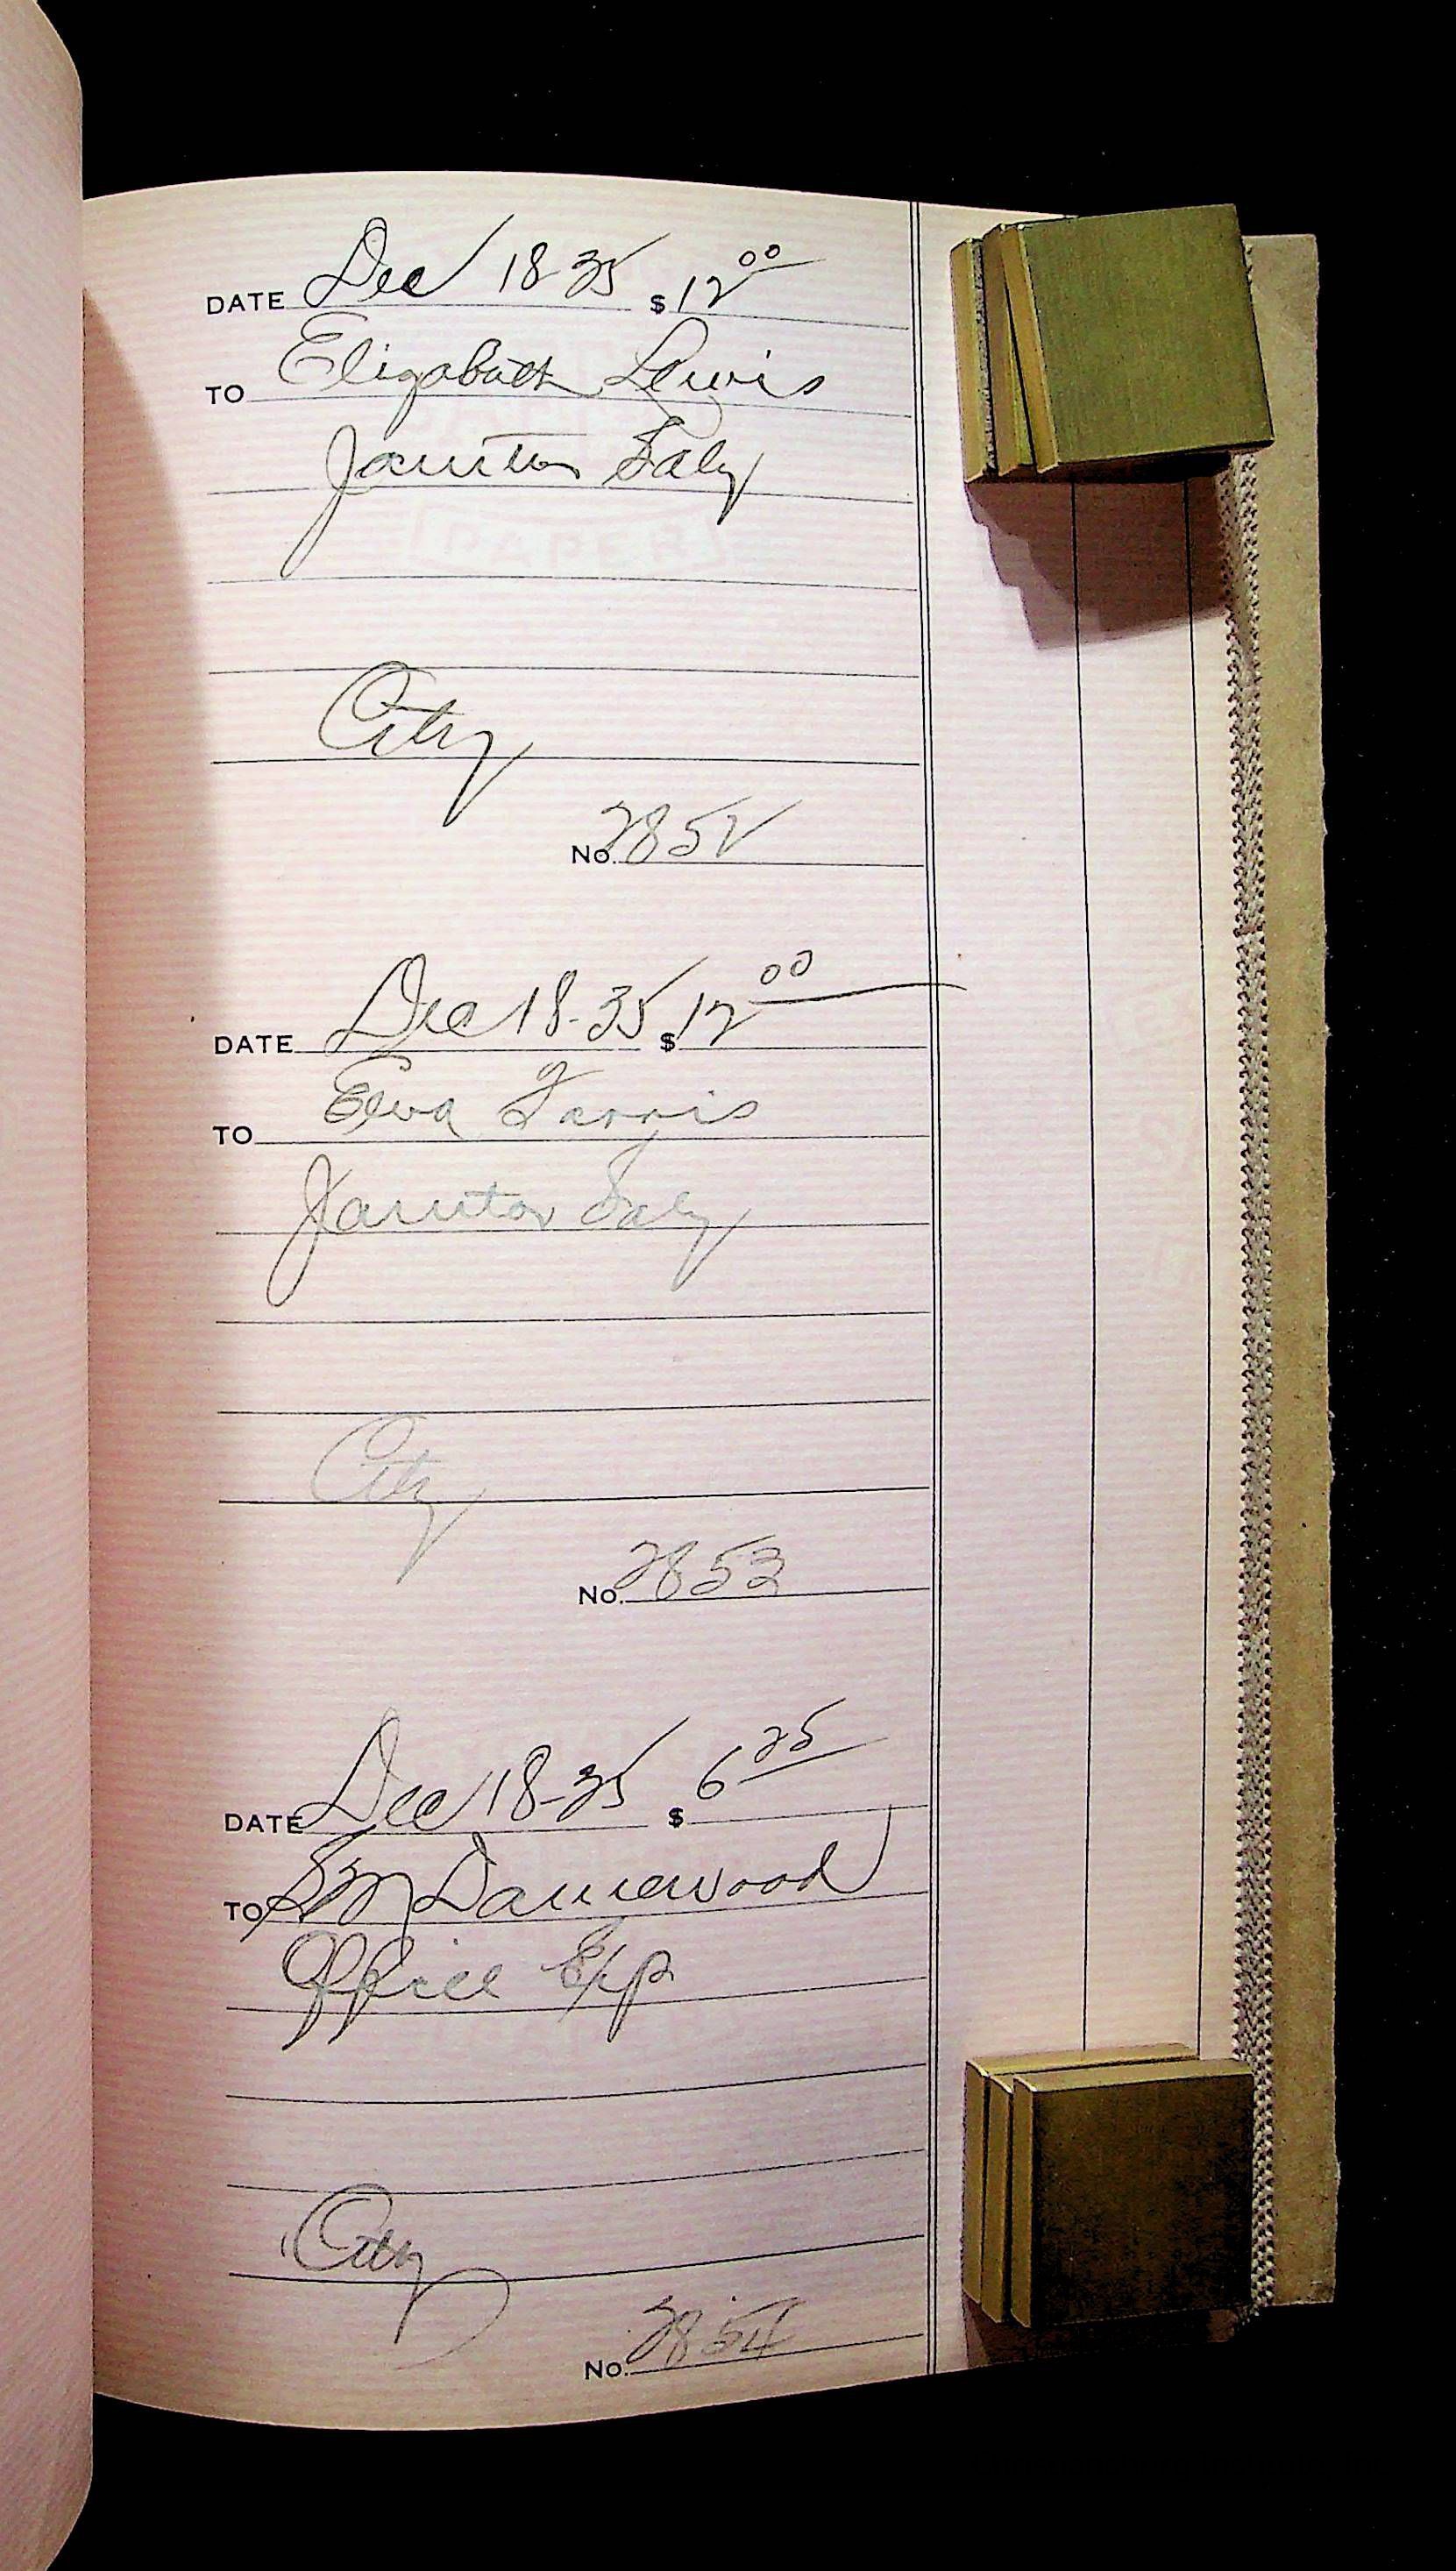 DATE Dec 18 35 $ 12 00
TO Elizabeth Lewis
Janitor Saly
PAPER
City
No. 2852
DATE Dec 18-35 $ 12 00
TO Farris
Janitor Saly
City
No. 2853
DATE Dec 18-35 $ 6 25
TO Danewood
Office Exp
City
No. 2854